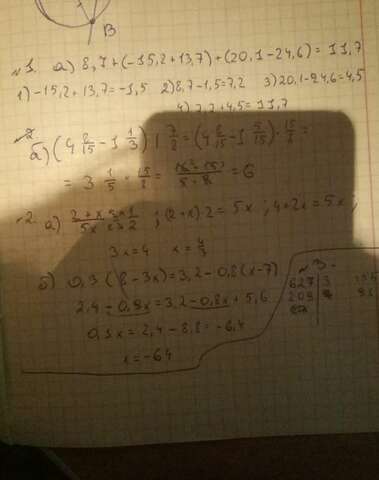 B
№1. а) 8,7+(-15,2+13,7)+(20,1-24,6)=11,7
1) -15,2+13,7=-1,5 2) 8,7-1,5=7,2 3) 20,1-24,6=4,5
4) 7,2+4,5=11,7
б) (4 8/15 - 1 1/3) : 7/8 = (4 8/15 - 1 5/15) · 15/8 =
= 3 1/5 · 15/8 = = 6
№2. а) (2+x)/5x = 1/2 ; (2+x)·2=5x ; 4+2x=5x ;
3x=4 x=4/3
б) 0,3(8-3x)=3,2-0,8(x-7)
2,4-0,9x=3,2-0,8x+5,6
0,1x=2,4-8,8=-6,4
x=-64
№3.
627 3
209